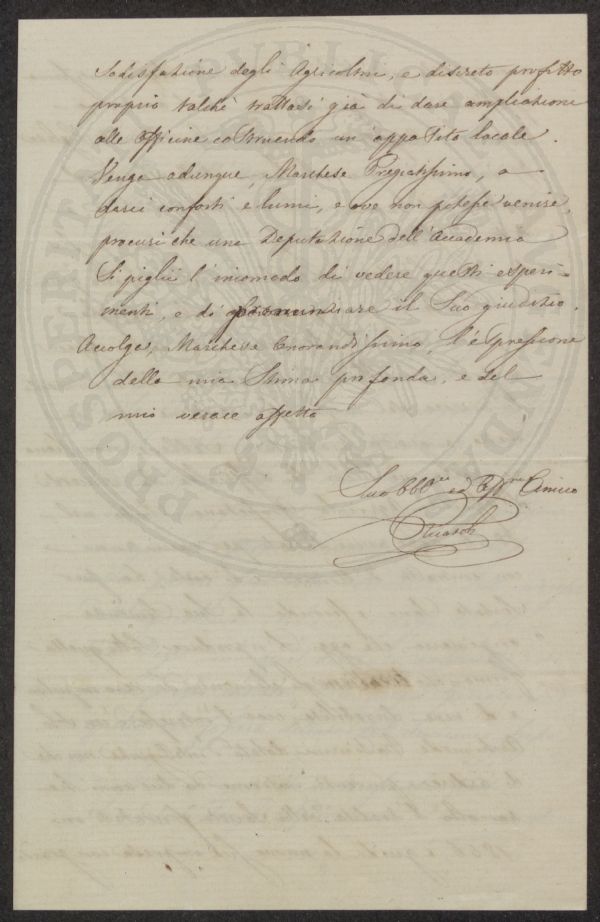 Sodisfazione degli Agricoltori, e discreto profitto
proprio talchè trattasi già di dare ampliazione
alle Officine costruendo un'apposito locale.
Venga adunque, Marchese Pregiatissimo, a
darci conforti e lumi, e ove non potesse venire,
procuri che una Deputazione dell'Accademia
Si piglii l'incomodo di vedere questi esperi-
menti, e di pronunciare il Suo giudizio.
Accolga, Marchese Onorandissimo, l'espressione
della mia Stima profonda, e del
mio verace affetto
Suo Obb.mo ed Aff.mo Amico
PROSPERITA